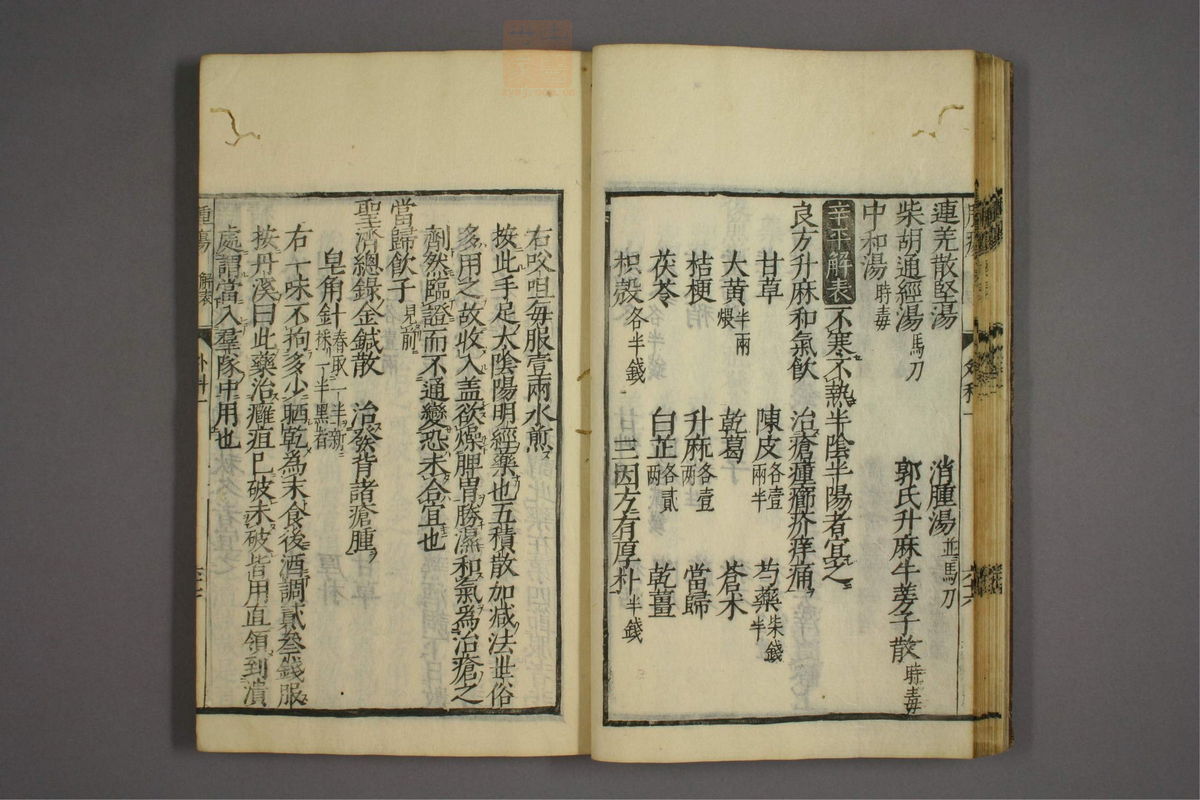 連羌散堅湯 消腫湯並馬刀
柴胡通經湯馬刀 郭氏升麻牛蒡子散時毒
中和湯時毒
辛平解表 不寒不熱半陰半陽者宜之
良方升麻和氣飲 治瘡癰癤疥痒痛
甘草 陳皮各壹兩半 芍藥柒錢半
大黃半兩煨 乾葛 蒼朮
桔梗 升麻各壹兩 當歸
茯苓 白芷各貳兩 乾薑
枳殼各半錢 三因方有厚朴半錢
右㕮咀每服壹兩水煎
按此手足太陰陽明經藥也五積散加减法世俗
多用之故收入盖欲燥脾胃勝濕和氣為治瘡之
劑然臨證而不通變恐未合宜也
當歸飲子見前
聖濟總錄金鍼散 治發背諸瘡腫
皂角針春取一半新採一半黑者
右一味不拘多少晒乾為末食後酒調貳叁錢服
按丹溪曰此藥治癰疽已破未破皆用直領到潰
處謂當入羣隊中用也
腫瘍 解表 外科一